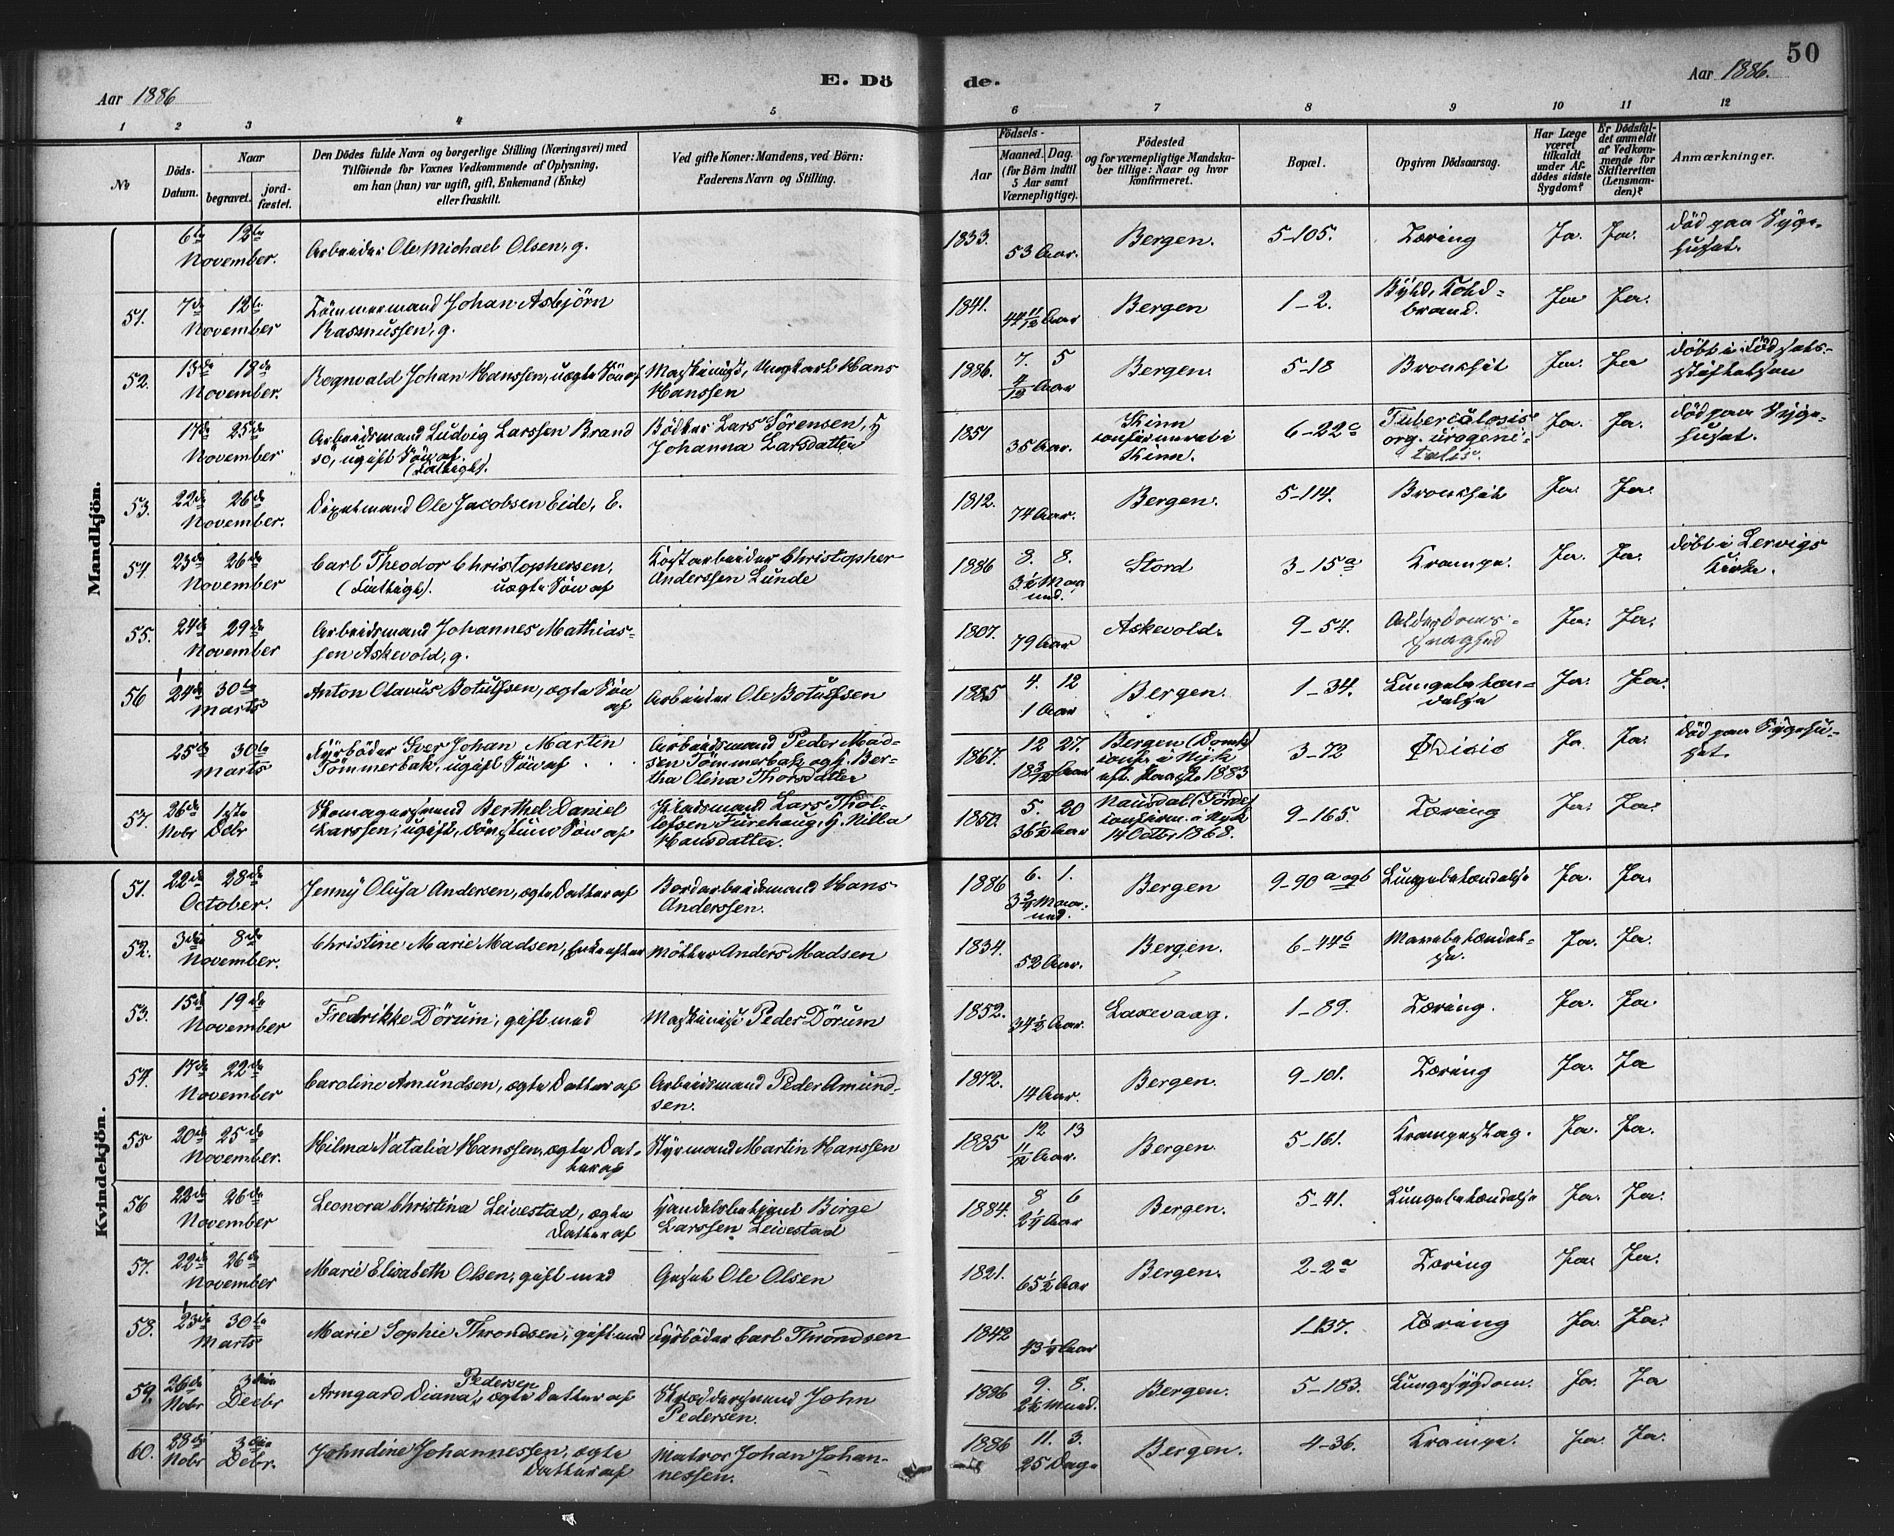 Aar 1886
E. Dö
de.
Aar 1886.
50
1 2 3 4 5 6 7 8 9 10 11 12
No
Döds-
Datum.
Naar
begravet.
jord-
fæstet.
Den Dödes fulde Navn og borgerlige Stilling (Næringsvei) med
Tilföiende for Voxnes Vedkommende af Oplysning,
om han (hun) var ugift, gift, Enkemand (Enke)
eller fraskilt.
Ved gifte Koner: Mandens, ved Börn:
Faderens Navn og Stilling.
Födsels-
Aar
Maaned. Dag.
(for Börn indtil
5 Aar samt
Værnepligtige).
Födested
og for værnepligtige Mandska-
ber tillige: Naar og hvor
konfirmeret.
Bopæl.
Opgiven Dödsaarsag.
Har Læge
været
tilkaldt
under Af-
dödes sidste
Sygdom?
Er Dödsfal-
det anmeldt
af Vedkom-
mende for
Skifteretten
(Lensman-
den)?
Anmærkninger.
Mandkjön.
6te 12te
November.
Arbeider Ole Michael Olsen, g.
1833.
53 Aar.
Bergen.
5-105.
Tæring
Ja. Ja.
död paa Syge-
huset.
51.
7de 12te
November
Tömmermand Johan Asbjörn
Rasmussen, g.
1841.
44 11/12 Aar
Bergen
1-2.
Byld, Kold-
brand.
Ja Ja.
52.
13de 18de
November.
Rognvald Johan Hanssen, uægte Sön af
Maskinist, Ungkarl Hans
Hanssen
1886.
7. 5
4/12 Aar
Bergen.
5-18
Bronkhit
Ja. Ja
döbt i Födsels-
stiftelsen
17de 25de
November
Arbeidsmand Ludvig Larssen Brand
sö, ugift Sön af
(Fattigf.
Bödker Lars Sörensen, H
Johanna Larsdatter
1851
35 Aar.
Kinn
confirmeret i
Kinn.
6-22c
Tuberculosis
org. urogeni-
talis.
Ja. Ja.
död paa Syge-
huset.
53.
22de 26de
November.
Ole Jacobsen Eide, E.
1812.
74 Aar.
Bergen.
5-114.
Bronkhit
Ja. Ja.
54.
23de 26de
November
Carl Theodor Christophersen,
(Fattigt). uægte Sön af
Christopher
Anderssen Lunde
1886
8. 8.
3½ Maa
ned.
Stord
3-15a
Krampe.
Ja. Ja.
döbt i Lervigs
Kirke.
55.
24de 29de
November
Arbeidsmand Johannes Mathias-
sen Askevold, g.
1807.
79 Aar
Askevold.
9-54.
Alderdoms-
svaghed
Ja. Ja.
56
24de 30te
Marts
Anton Olavus Botulfsen, ægte Sön
af
Arbeider Ole Botulfsen
1885
4. 12
1 Aar
Bergen.
1-34.
Lungebetæn-
delse
Ja. Ja.
25de 30te
Marts
Fyrböder Iver Johan Martin
Tömmerbak, ugift Sön af
Arbeidsmand Peder Mad-
sen Tömmerbak og H. Ber-
tha Olina Thorsdatter
1867.
12 27.
Bergen (Domk)
conf. i Nyk
1883
3-72
Ja. Ja.
död paa Sygehu-
set.
57.
26de 1ste
Nobr Debr
Skomagersvend Berthel Daniel
Larssen, ugift, Sön af
Lars Thol-
lefsen Furehaug, H. Nilla
Hansdatter
1850.
5. 20
36½ Aar
Naustdal Förde
confirm. i Nyk
14 Octbr 1868.
9-165.
Tæring
Ja. Ja.
Kvindekjön.
51.
22de 28de
October.
Jenny Olufa Andersen, ægte Datter af
Bordarbeidsmand Hans
Anderssen.
1886
6. 1.
3¾ Maa-
ned.
Bergen
9-90 a og b
Lungebetændelse
Ja. Ja.
52.
3die 8de
November.
Christine Marie Madsen, Enke efter
Möller Anders Madsen
1834.
52 Aar.
Bergen.
6-44b
Mavebetændel-
se.
Ja. Ja.
53.
15de 19de
November
Fredrikke Dörum, gift med
Maskinist Peder Dörum
1852.
34½ Aar.
Laxevaag.
1-89.
Tæring.
Ja. Ja.
54.
17de 22de
November
Caroline Amundsen, ægte Datter af
Arbeidsmand Peder Amund-
sen.
1872.
14 Aar.
Bergen.
9-101.
Tæring
Ja. Ja
55
20de 25de
November.
Hilma Natalia Hanssen, ægte Dat-
ter af
Styrmand Martin Hanssen
1885
12 13
11/12 Aar.
Bergen.
5-161.
Krampeslag.
Ja. Ja.
56
22de 26de
November
Leonora Christina Leivestad, ægte
Datter af
Handelsbetjent Börge
Larssen Leivestad
1884.
8 6
2¼ Aar
Bergen.
5-41.
Lungebetændelse
Ja. Ja.
57.
22de 26de
November
Marie Elisabeth Olsen, gift med
Ole Olsen
1821.
65½ Aar
Bergen.
2-2a
Tæring
Ja. Ja.
58.
23de 30te
Marts
Marie Sophie Throndsen, gift med
Fyrböder Carl Throndsen
1842
43¼ Aar
1-137.
Tæring
Ja. Ja.
59.
26de 3die
Nobr Decbr
Pedersen
Armgard Diana, ægte Datter af
Skræddersvend John
Pedersen.
1886
9. 8.
2½ Mund.
Bergen.
5-183.
Lungesygdom.
Ja. Ja
60.
28de 3die
Nobr Debr.
Johndine Johannessen, ægte
Datter af
Matros Johan Johan-
nessen.
1886
11. 3.
25 Dage
Bergen.
4-36.
Krampe.
Ja. Ja.